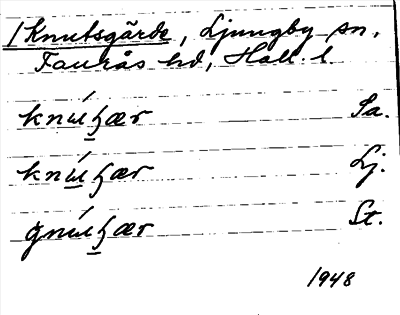 1 Knutsgärde, Ljungby sn,
Faurås hd, Hall. l.
knúʒær Sa.
knúʒær Lj.
gnúʒær St.
1948